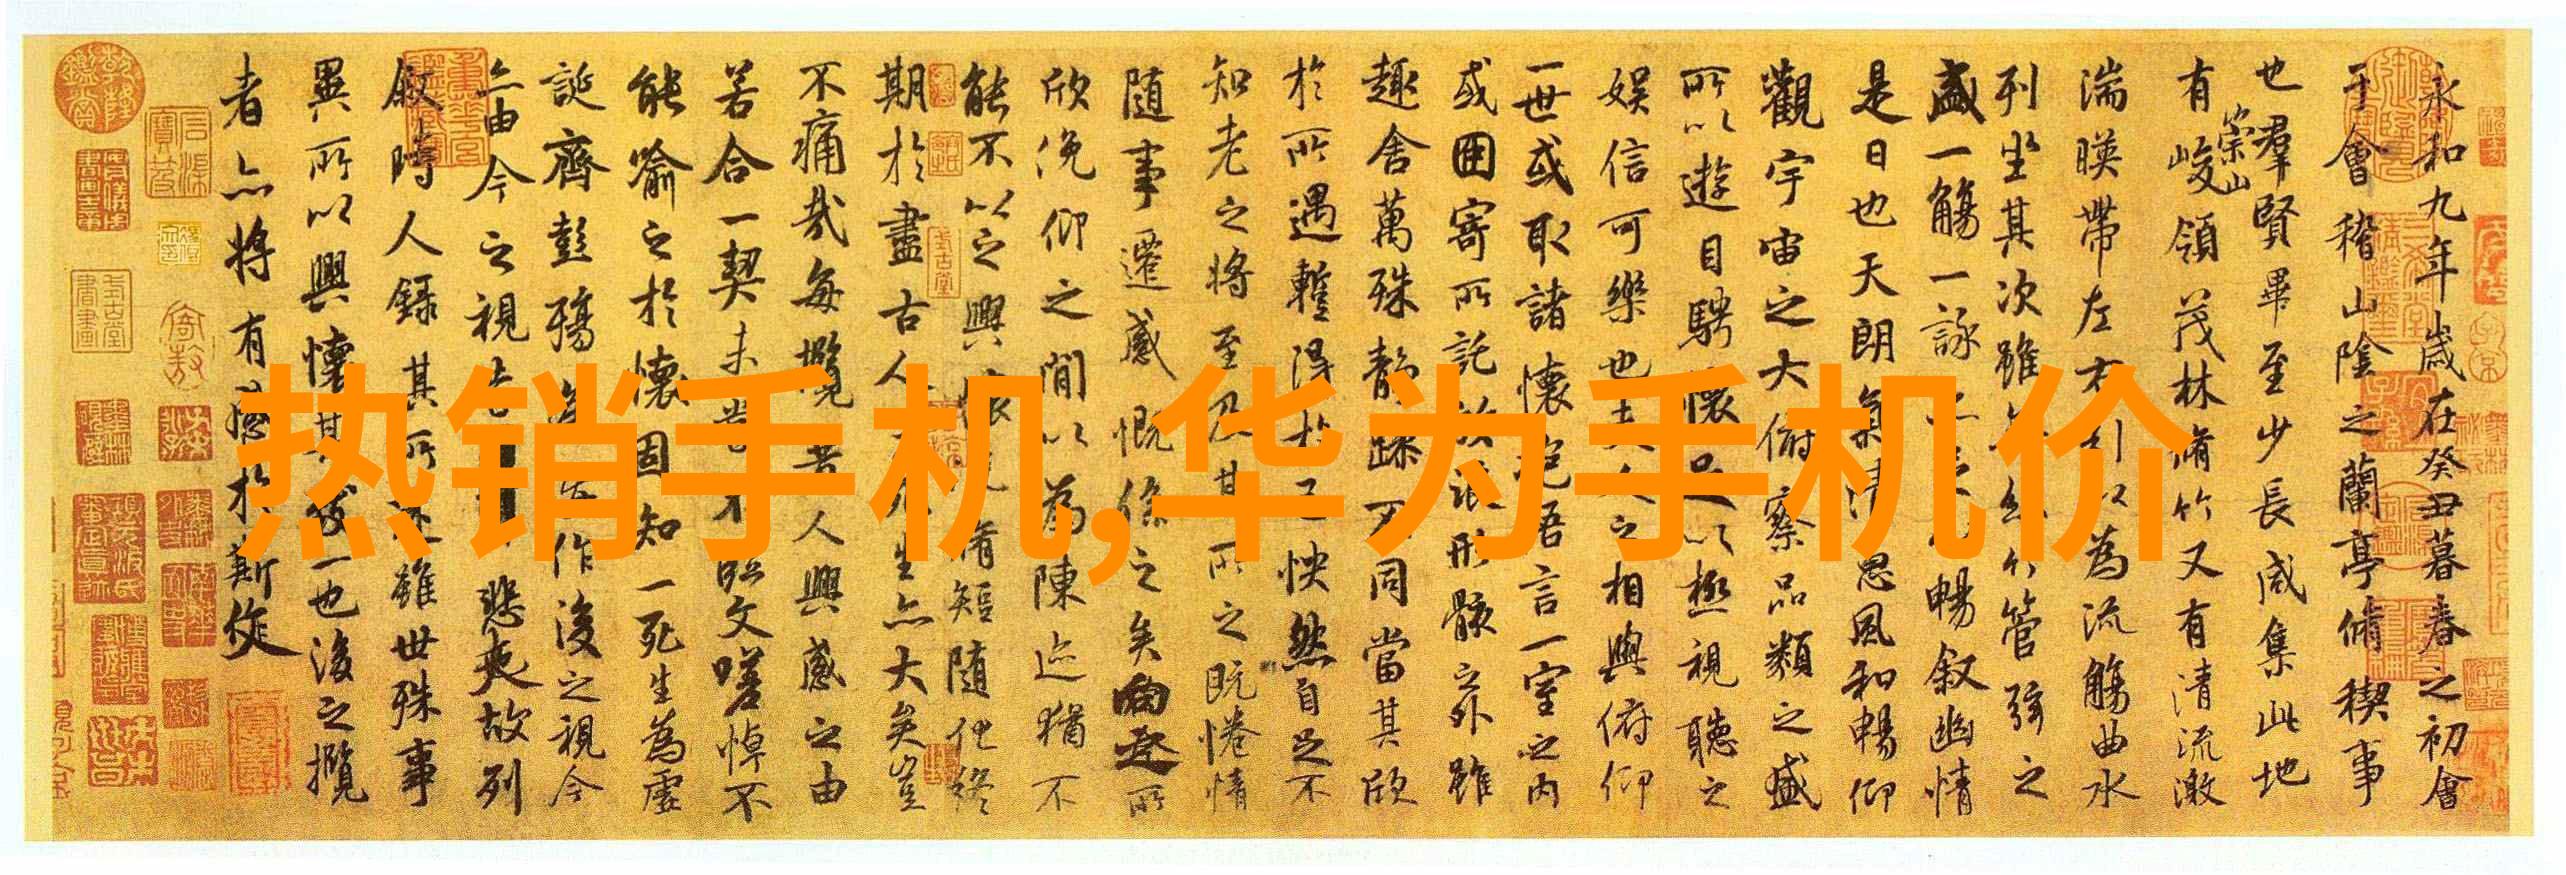 热销手机,华为手机价
永和九年歲在癸丑暮春之初會
于會稽山陰之蘭亭脩稧事
也羣賢畢至少長咸集此地
有崇山峻領茂林脩竹又有清流激
湍暎帶左右引以為流觴曲水
列坐其次雖無絲竹管弦之
盛一觴一詠亦暢敘幽情
是日也天朗氣清惠風和暢仰
觀宇宙之大俯察品類之盛
所以遊目騁懷足以極視聽之
娛信可樂也夫人之相與俯仰
一世或取諸懷抱吾言一室之內
或因寄所託放浪形骸之外雖
趣舍萬殊靜躁不同當其欣
於所遇蹔得於己怏然自足不
知老之將至及其所之既惓情
隨事遷感慨係之矣向之所
欣俛仰之閒以為陳迹猶不
能不以之興懷況脩短隨化終
期於盡古人云死生亦大矣豈
不痛哉每攬昔人興感之由
若合一契未嘗不臨文嗟悼不
能喻之於懷固知一死生為虛
誕齊彭殤為妄作後之視今
亦由今之視昔悲夫故列
敘時人錄其所述雖世殊事
異所以興懷其致一也後之攬
者亦將有感於斯文